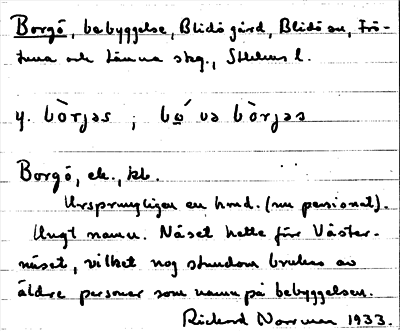 Borgö, bebyggelse, Blidö gård, Blidö sn, Frö-
tuna och Länna skg., Sthlms l.
y. bòrjəs ; bo̱´ və bòrjəs
Borgö, ek., kb.
Ursprungligen en hmd. (nu pensionat).
Ungt namn. Näset hette förr Väster-
näset, vilket nog stundom brukas av
äldre personer som namn på bebyggelsen.
Rickard Norrman 1933.